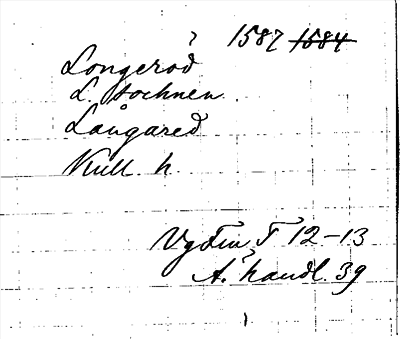 1587 1584
Longerod
L. sochnen
Långared
Kull. h.
Vg Fin. T 12-13
A. handl. 39